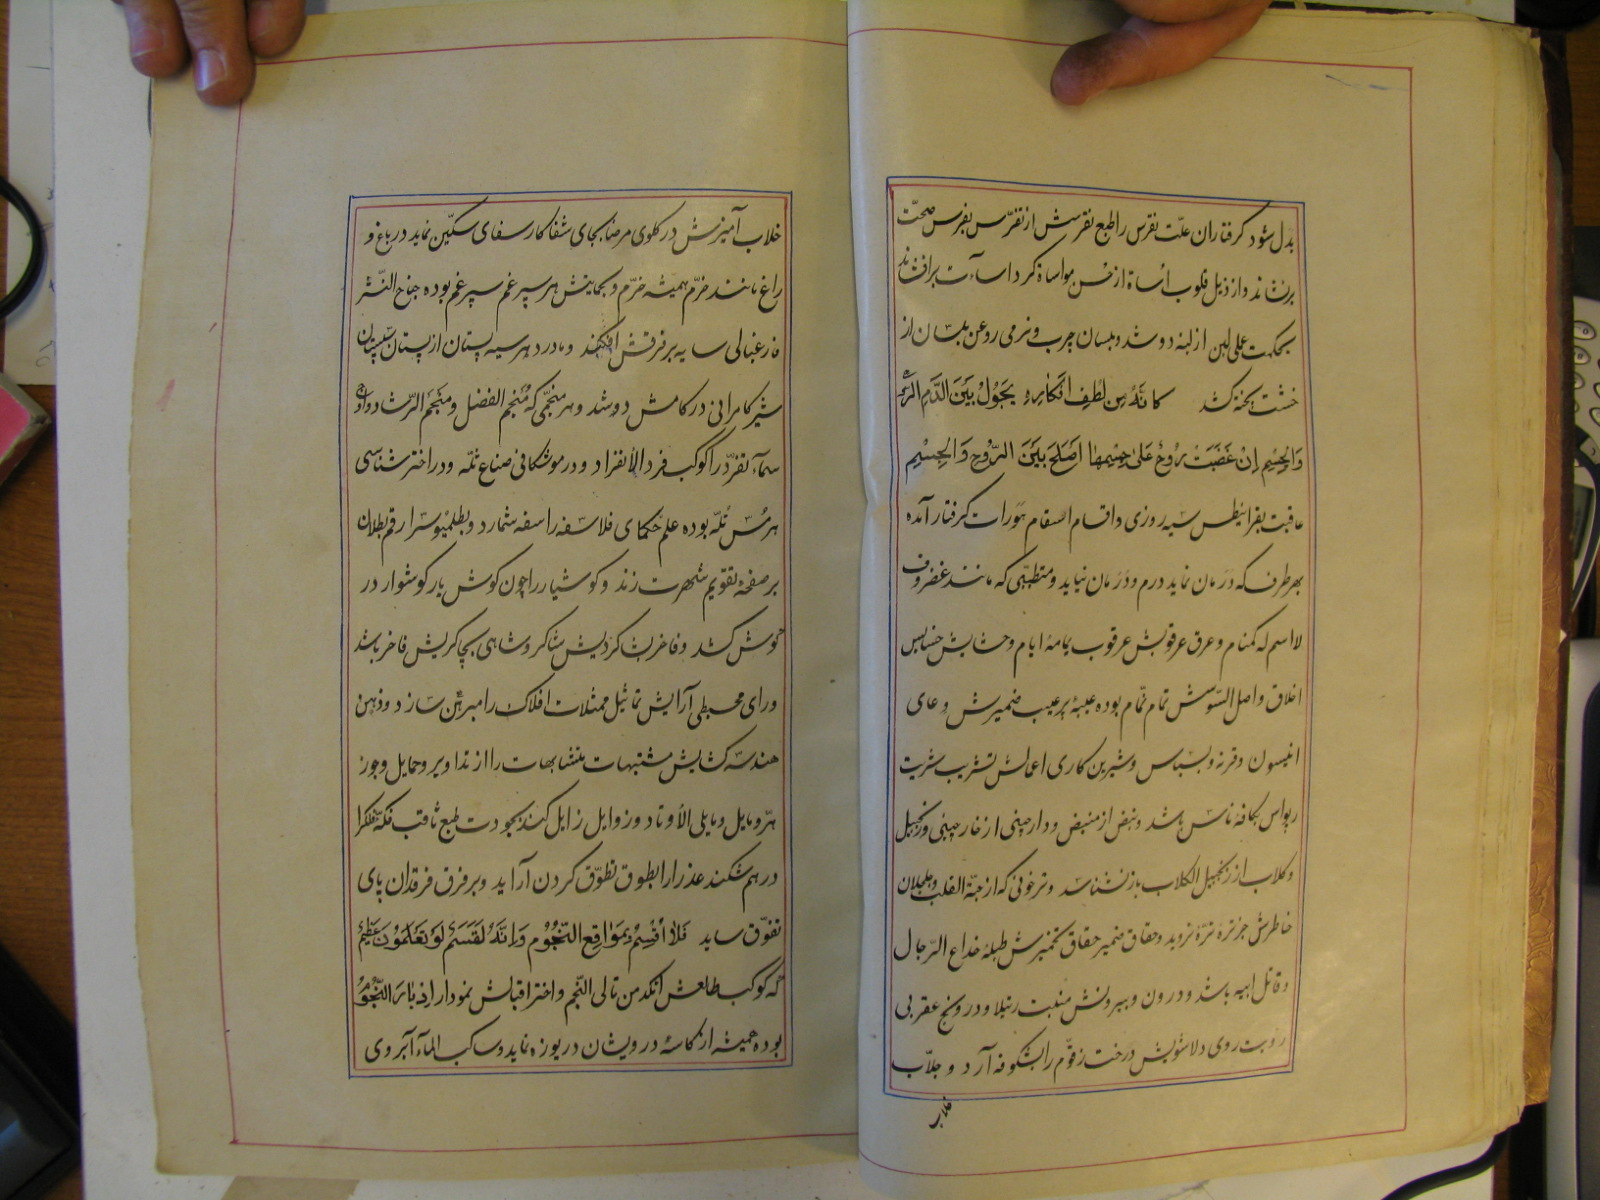 بدل شود گرفتاران علّت نقرس را طبع نقرسش از تقرّس بفرس صحّت
برنشاند و از ذیل قلوب اُساة از حسن مواساة گرد اسآءت برافشاند
بحکمت علی لبن از لبنه دوشد و بلسان چرب و نرمی روغن بلسان از
خشت پخته کشد کَانّهُ مِن لُطفِ افکارِهِ یَجُولُ بَیْنَ الدَّمِ
وَالجِسْمِ اِنْ غَضِبَتْ رُوحٌ عَلی جِسْمِها اَصْلَحَ بَیْنَ الرُّوحِ وَ الجِسْمِ
عاقبت بقرانیطس سیه روزی و اقسام اسقام گرفتار آمده
بهر طرف که دَرمان نماید درم و دَرمان نیاید و متطبّبی که مانند غضروف
لا اسم له گمنام و عرق عرقوبش عرقوب یمامهٔ ایام و
اخلاق و اصل السّوسش تمام نمّام بوده عیبهٔ پرعیب ضمیرش وعای
انیسون و قرفه و بسباس و شیرین کاری اعمالش
باشد و نبض از منبض و دارچینی از خار چینی و زنجبیل
و کلاب از زنجبیل الکلاب باز نشناسد و ترخونی که از حبّة القلب و جلجلان
خاطرش جز ترّهٔ تروید و حقاق ضمیر حقاق تخمیرش طبلهٔ خداع الرّجال
و قاتل ابیه باشد و درون و بیرونش منبت رتیلا و درونج عقربی
روی دلاشوبش درخت زقّوم را بشکوفه آرد و جلّاب
خلاب
خلاب آمیزش در گلوی مرضا بجای شفا کار سفای سکّین نماید در باغ و
راغ مانند خرّم همیشه خرّم و بجایش هر سپرغم سپر غم بوده جناح النّسر
فارغبالی سایه بر فرقش افکند و مادر دهر سیه پستان از پستان سپستان
شیر کامرانی در کامش دوشد و هر منجّمی که مُنجم الفضل و منجم الرّشاد و اوج
سمآء تفرّد را کوکب فرد الانفراد و در موشکافی صناع ثلّه و در اختر شناسی
هرمس ثلّه بوده علم حکمای فلاسفه را سفه شمارد و بطلمیوس را رقم بطلان
بر صفحهٔ تقویم شهرت زند و کوشیار را چون گوش یار گوشوار در
گوش کشد و فاخر بشاگردیش شاکر و شاهی بچاکریش فاخر باشد
و رای مجسطی آرایش تماثیل ممثلات افلاک را مبرهن سازد و ذهن
هندسه گشایش مشتبهات متشابهات را از تداویر و حمایل و جوز
هرّ و مایل و مایلی الأوتاد و زوایل زایل کند بجودت طبع ثاقب
درهم شکند عذرا را بطوق تطوّق گردن آراید و بر فرق فرقدان پای
تفوّق ساید فَلا اُقْسِمُ بِمَوَاقِعِ النُّجُومِ وَ اِنَّهُ لَقَسَمٌ لَوْ تَعْلَمُونَ عَظِیمٌ
که کوکب طالعش انکد من تالی النّجم و اختر اقبالش نمودار اِدْبَارَ النُّجُومِ
بوده همیشه از کاسهٔ درویشان دریوزه نماید و ساکب المآء آبروی